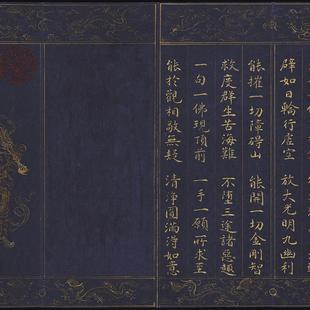 辟如日輪行虛空　放大光明九幽利
能摧一切障碍山　能開一切金剛智
救度群生苦海難　不墮三途諸惡趣
一句一佛現頂前　一手一願所求至
能於觀相敬無疑　清淨圓滿得如意